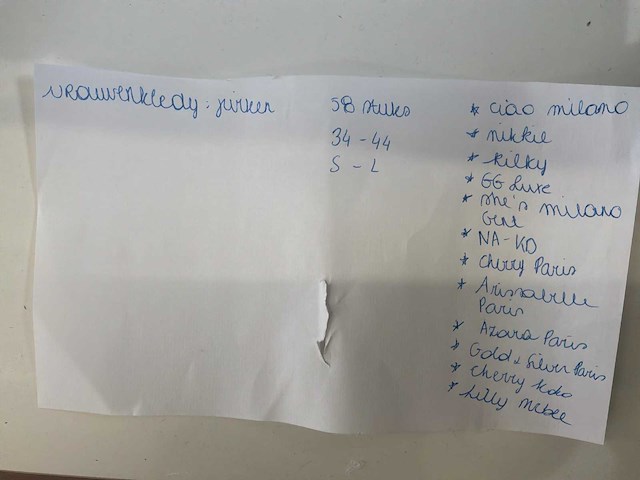 vrouwenkledij : jurken
58 stuks
34 - 44
S - L
* ciao milano
* nikkie
* rilky
* GG Luxe
* she's milano
* NA-KD
* cherry Paris
* Arissabelle
Paris
* Azara Paris
* Gold & Silver Paris
* cherry koko
* Lilly mcbee